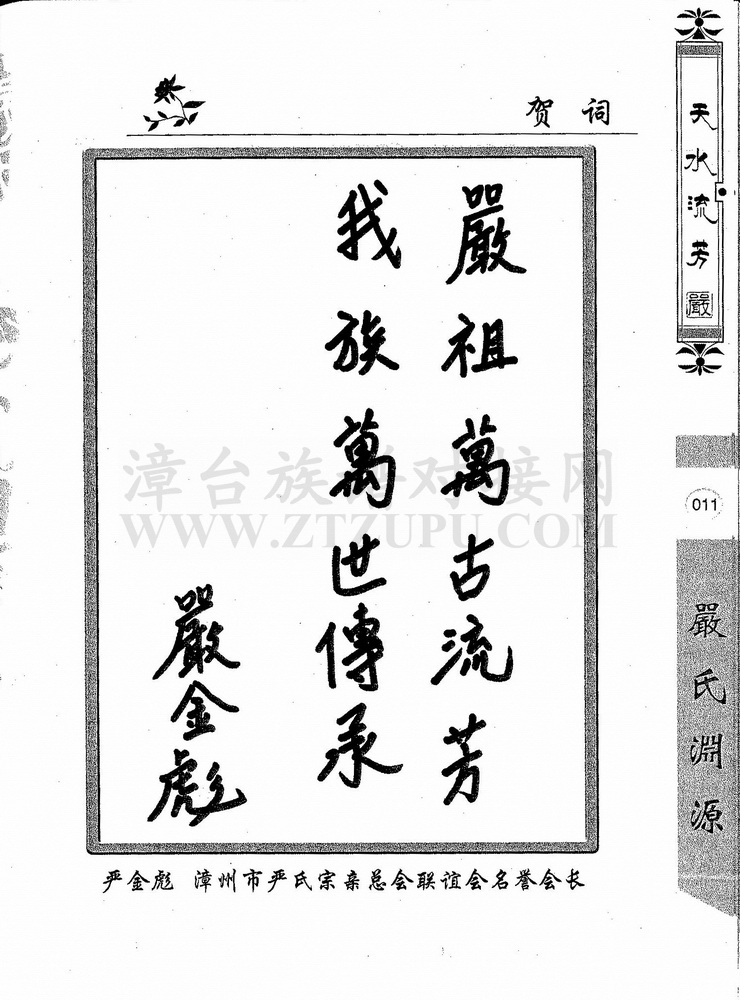 贺词
嚴祖萬古流芳
我族萬世傳承
嚴金彪
严金彪 漳州市严氏宗亲总会联谊会名誉会长
天水流芳
嚴
011
嚴氏淵源
漳台族谱对接网
WWW.ZTZUPU.COM